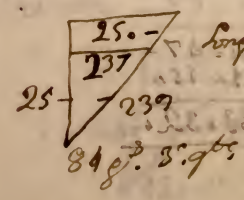 25.
long
237
25 239
84 gˢ. 3. qᵗˢ.